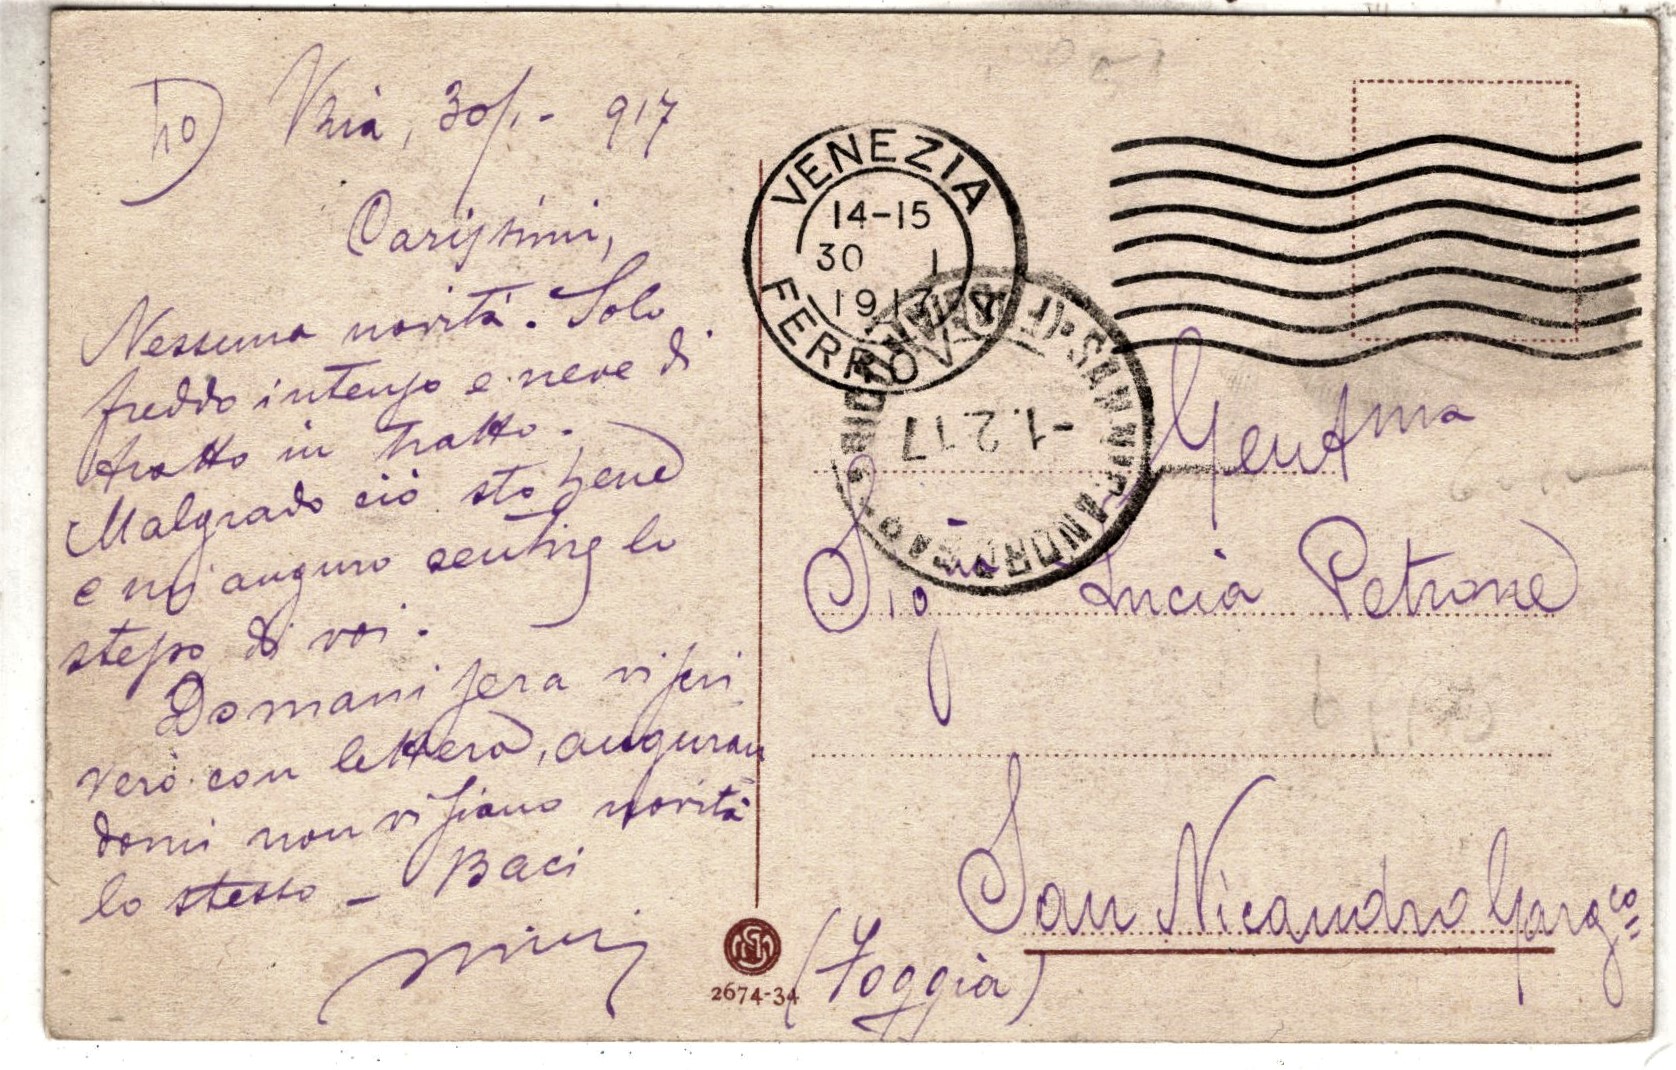 10) Vzia, 30/1.- 917
Carissimi,
Nessuna novità. Solo
freddo intenso e neve di
tratto in tratto.
Malgrado ciò sto bene
e mi auguro sentire lo
stesso di voi.
Domani sera vi scri
verò con lettera, auguran
domi non vi siano novità
lo stesso - Baci
VENEZIA
14-15
30 I
1917
FERROVIA
-1.2.17
Gent.ma
Sig.na Lucia Petrone
San Nicandro Garg.co
(Foggia)
2674-34